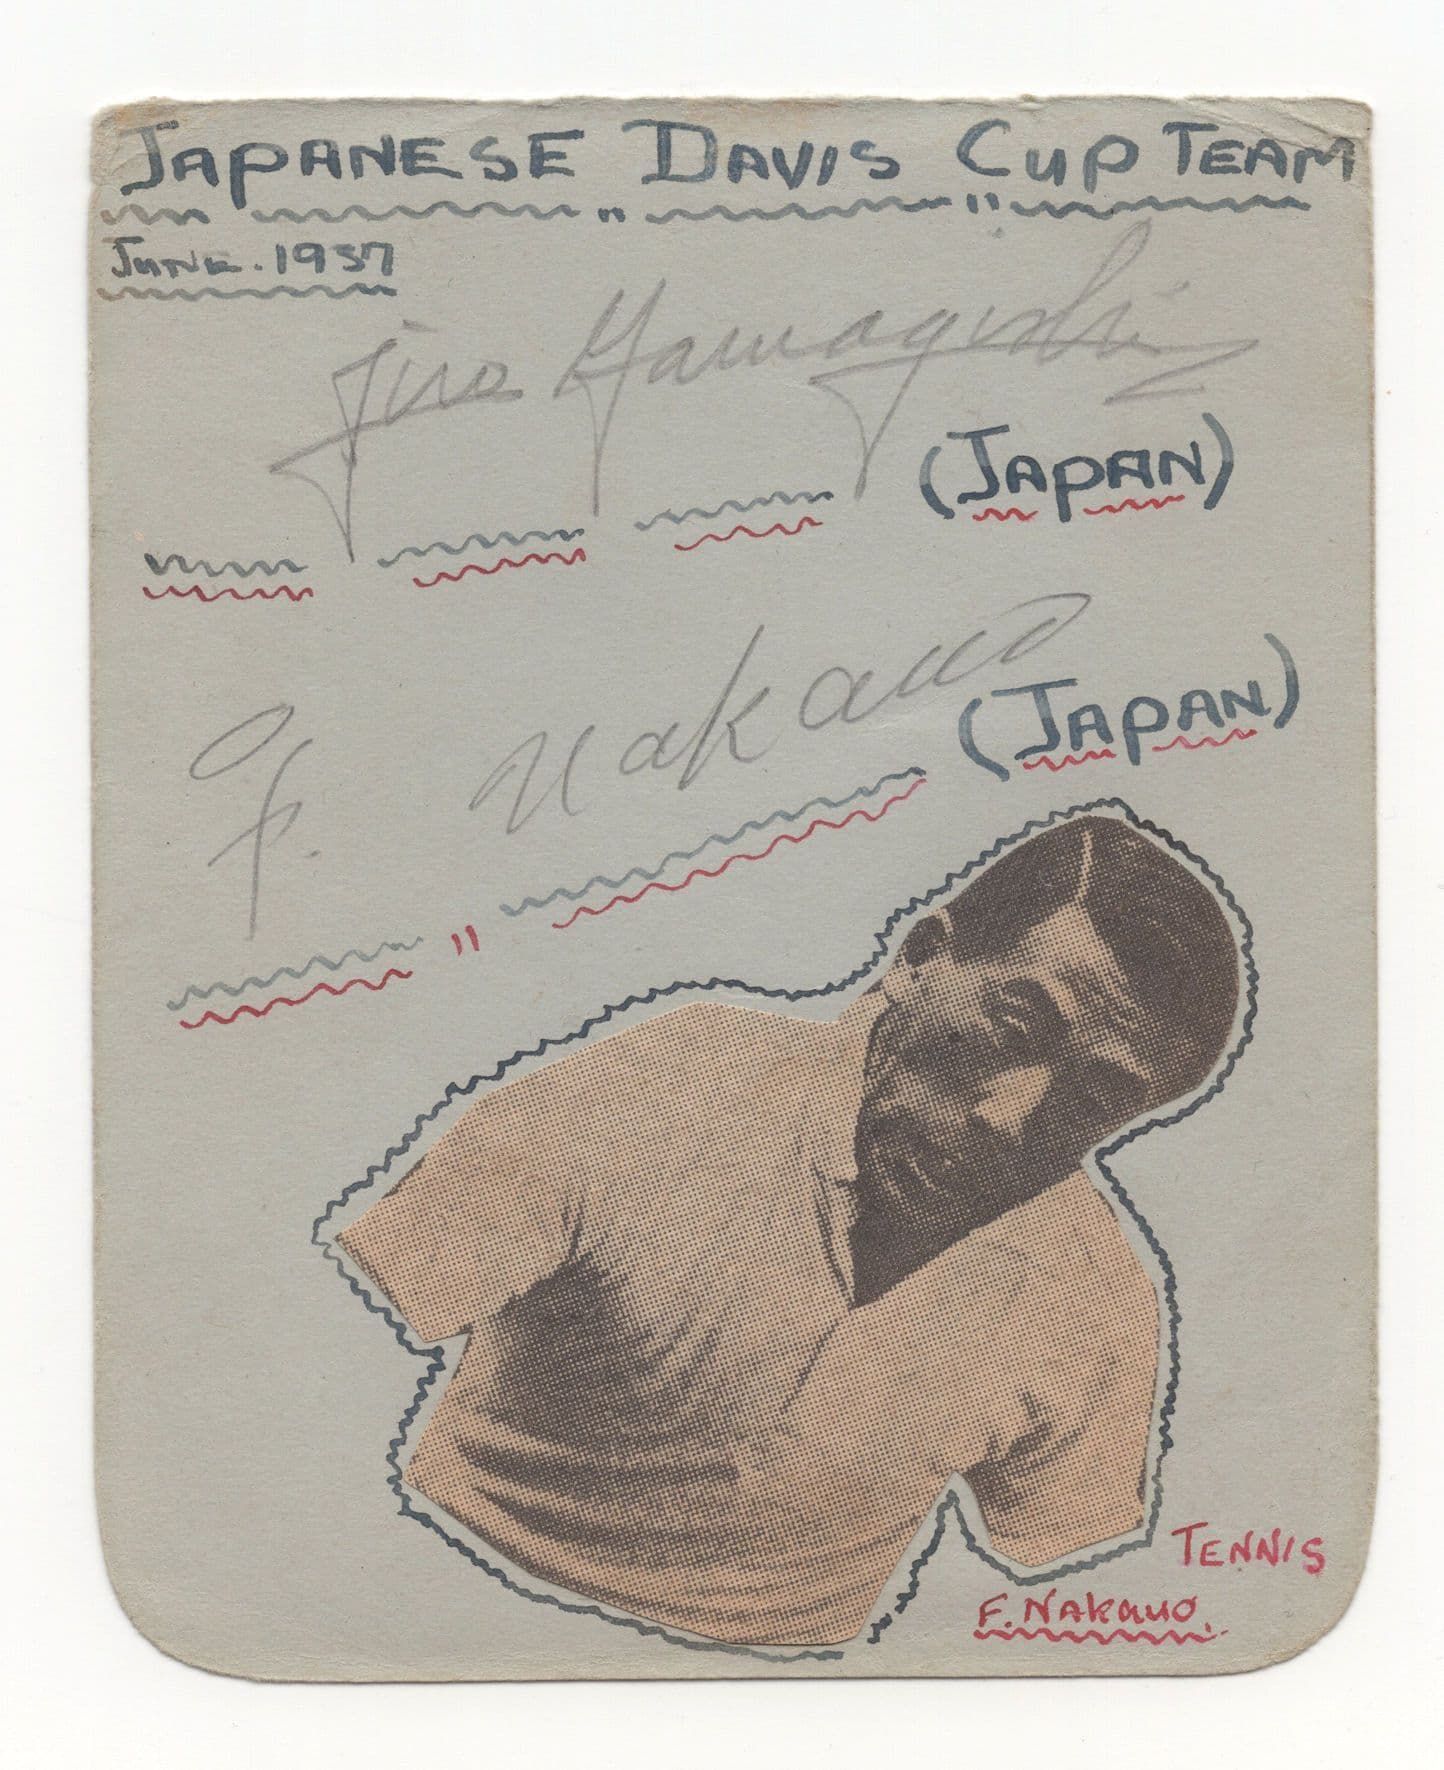 JAPANESE DAVIS CUP TEAM
JUNE. 1937
Jiro Yamagishi
(JAPAN)
F. Nakano
(JAPAN)
TENNIS
F. NAKANO.